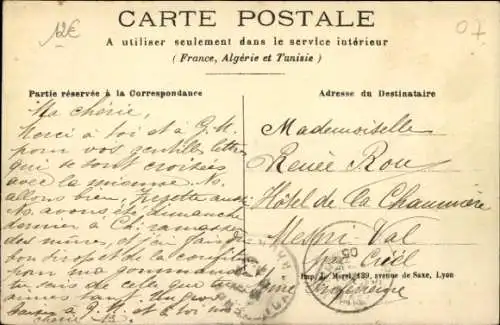 12€
07
CARTE POSTALE
A utiliser seulement dans le service intérieur
( France, Algérie et Tunisie )
Partie réservée à la Correspondance
Adresse du Destinataire
Ma chérie,
Merci à toi et à G. M.
pour vos gentilles lettres
qui se sont croisées
avec la mienne. Ns.
allons bien, aussi
Ns. avons été dimanche
dernier à ramasser
des mûres, et j'ai fait
bon de la
pour ma gourmande
tu sais de celles que tu
aimes tant. Un gros
baiser à G. M. et à toi ma
chérie
Mademoiselle
Renée Rou
Hôtel de la Chaumière
Val
par
Imp. L. Morel, 129, avenue de Saxe, Lyon